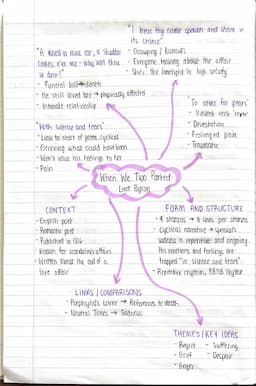 "I hear thy name spoken and share in
its shame"
- Gossiping / Rumours
- Everyone talking about the affair
- She's the limelight in high society
"A knell in mine ear, a shudder
comes o'er me - Why wert thou
so dear?"
- Funeral bell → death
- He still loved her → physically affected
- Intimate relationship
"To sever for years"
- Violent verb 'sever'
- Devastation
- Prolonged pain
- Traumatic
"With silence and tears"
- Links to start of poem, cyclical
- Grieving what could have been
- Won't voice his feelings to her
- Pain
When We Two Parted
Lord Byron
CONTEXT
- English poet
- Romantic poet
- Published in 1816
- Known for scandalous affairs
- Written about the end of a
love affair
FORM AND STRUCTURE
- 4 stanzas → 8 lines per stanza
- Cyclical narrative → speaker's
sadness is repetitive and ongoing.
His emotions and feelings are
trapped "in silence and tears".
- Repetitive rhythm, ABAB rhyme
LINKS / COMPARISONS
- Porphyria's Lover → References to death
- Neutral Tones → Sadness
THEMES / KEY IDEAS
- Regret
- Suffering
- Grief
- Despair
- Anger